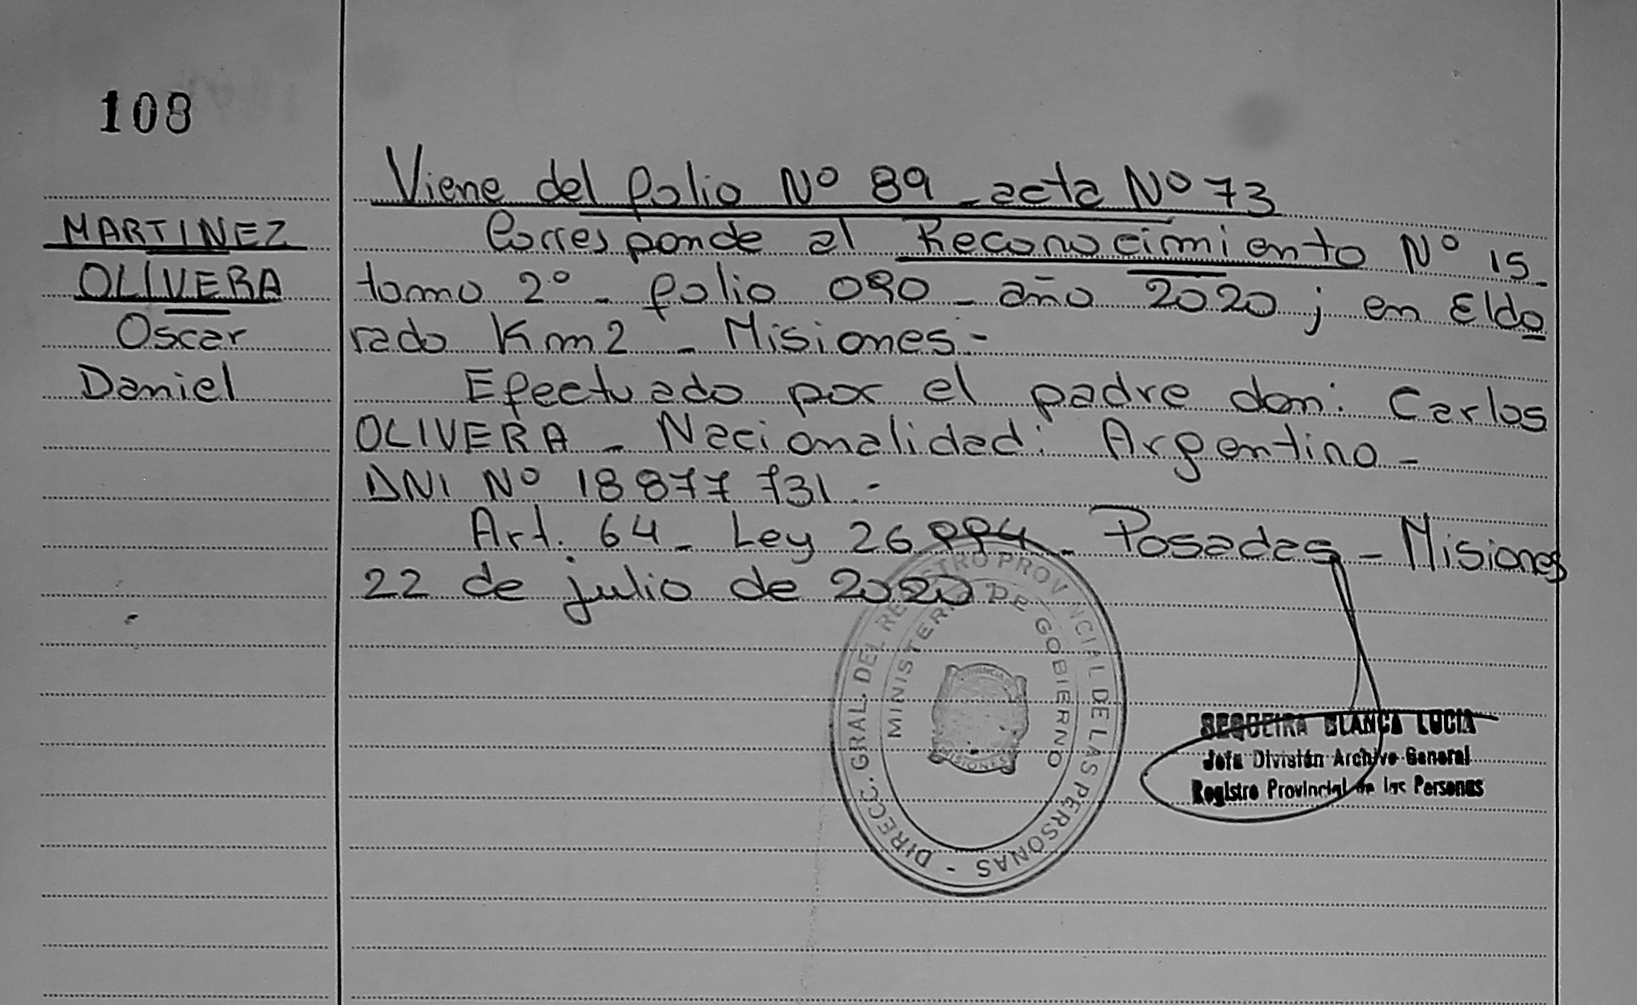 108
MARTINEZ
OLIVERA
Oscar
Daniel
Viene del folio Nº 89 - acta Nº 73
Corresponde al Reconocimiento Nº 15
tomo 2º - folio 090 - año 2020 ; en Eldo
rado Km 2 - Misiones -
Efectuado por el padre don: Carlos
OLIVERA - Nacionalidad: Argentino -
DNI Nº 18 877 731 -
Art. 64 - Ley 26994 - Posadas - Misiones
22 de julio de 2020
DIRECC. GRAL. DEL REGISTRO PROVINCIAL DE LAS PERSONAS -
MINISTERIO DE GOBIERNO
MISIONES
SEQUEIRA BLANCA LUCIA
Jefa División Archivo General
Registro Provincial de las Personas